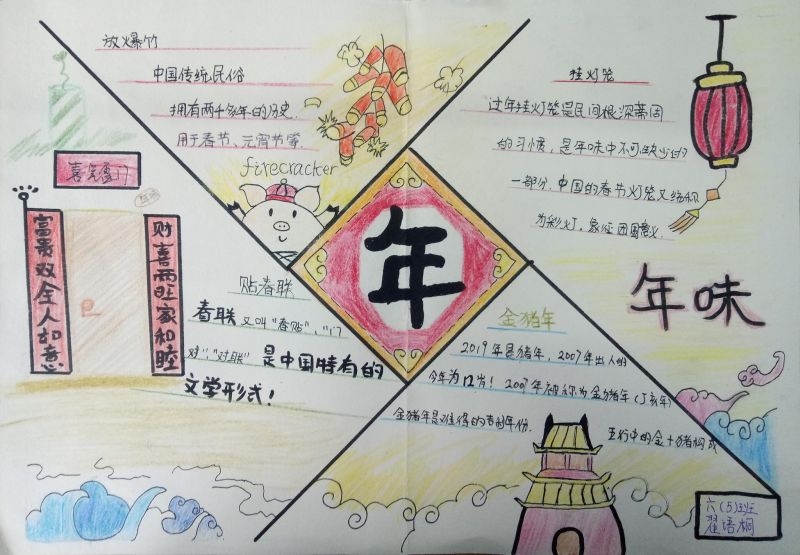 放火爆竹
中国传统民俗
拥有两千多年的历史.
用于春节、元宵节等
firecracker
挂灯笼
过年挂灯笼是民间根深蒂固
的习惯，是年味中不可缺少的
一部分.中国的春节灯笼又统称
为彩灯。象征团圆意义.
喜气盈门
富贵双全人如意
财喜两旺家和睦
年
年味
贴春联
春联又叫“春贴”、“门
对”、“对联”是中国特有的
文学形式！
金猪年
2019年是猪年，2007年出人的
今年为12岁！2007年被称为金猪年（丁亥年）
金猪年是难得的有的年份.
五行中的金+猪构成
六(5)班
翟语桐